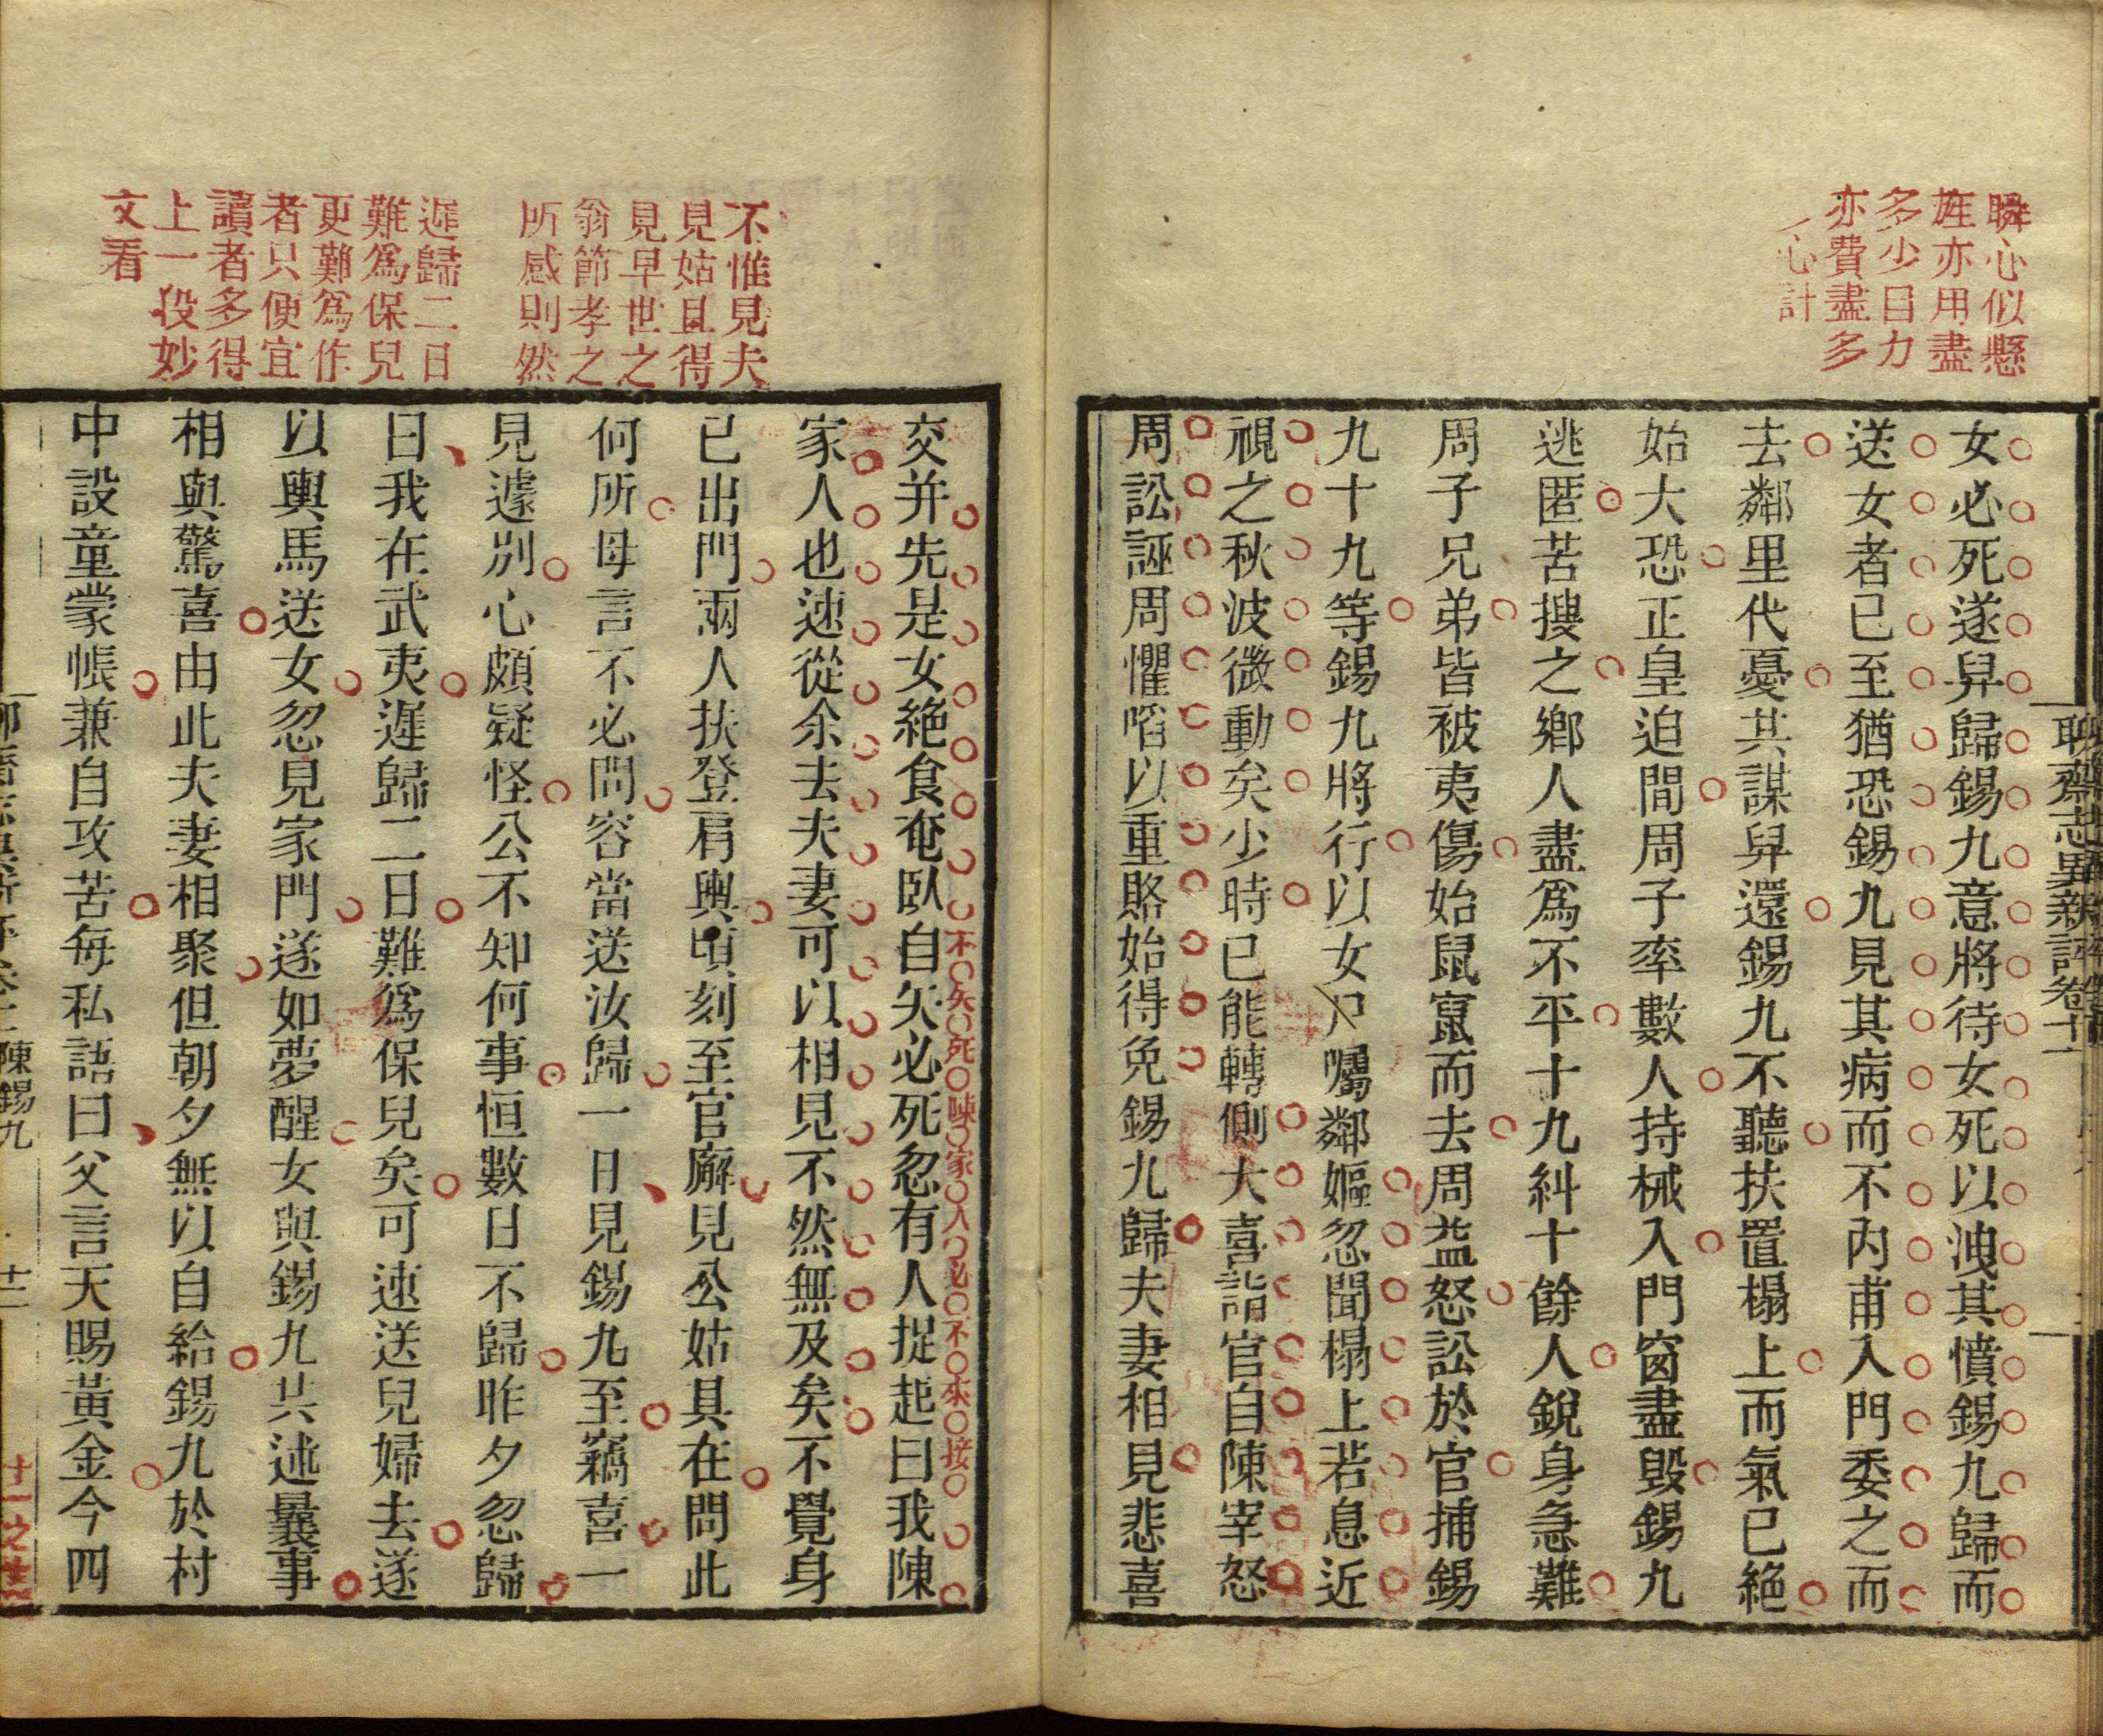 瞬心似懸
旌亦用盡
多少目力
亦費盡多
心計
聊齋志異新評卷十一
女必死遂舁歸錫九意將待女死以洩其憤錫九歸而
送女者已至猶恐錫九見其病而不內甫入門委之而
去鄰里代憂共謀舁還錫九不聽扶置榻上而氣已絕
始大恐正皇迫間周子率數人持械入門窗盡毀錫九
逃匿苦搜之鄉人盡爲不平十九糾十餘人銳身急難
周子兄弟皆被夷傷始鼠竄而去周益怒訟於官捕錫
九十九等錫九將行以女尸囑鄰嫗忽聞榻上若息近
視之秋波微動矣少時已能轉側大喜詣官自陳宰怒
周訟誣周懼啗以重賂始得免錫九歸夫妻相見悲喜
不惟見夫
見姑且得
見早世之
翁節孝之
所感則然
遲歸二日
難爲保兒
更難爲作
者只便宜
讀者多得
上一段妙
文看
交并先是女絕食奄臥自矢必死忽有人捉起曰我陳
不矢死陳家人必不來接
家人也速從余去夫妻可以相見不然無及矣不覺身
已出門兩人扶登肩輿頃刻至官廨見公姑具在問此
何所母言不必問容當送汝歸一日見錫九至竊喜一
見遽別心頗疑怪公不知何事恒數日不歸昨夕忽歸
曰我在武夷遲歸二日難爲保兒矣可速送兒婦去遂
以輿馬送女忽見家門遂如夢醒女與錫九共述曩事
相與驚喜由此夫妻相聚但朝夕無以自給錫九於村
中設童蒙帳兼自攻苦每私語曰父言天賜黃金今四
陳錫九
十三